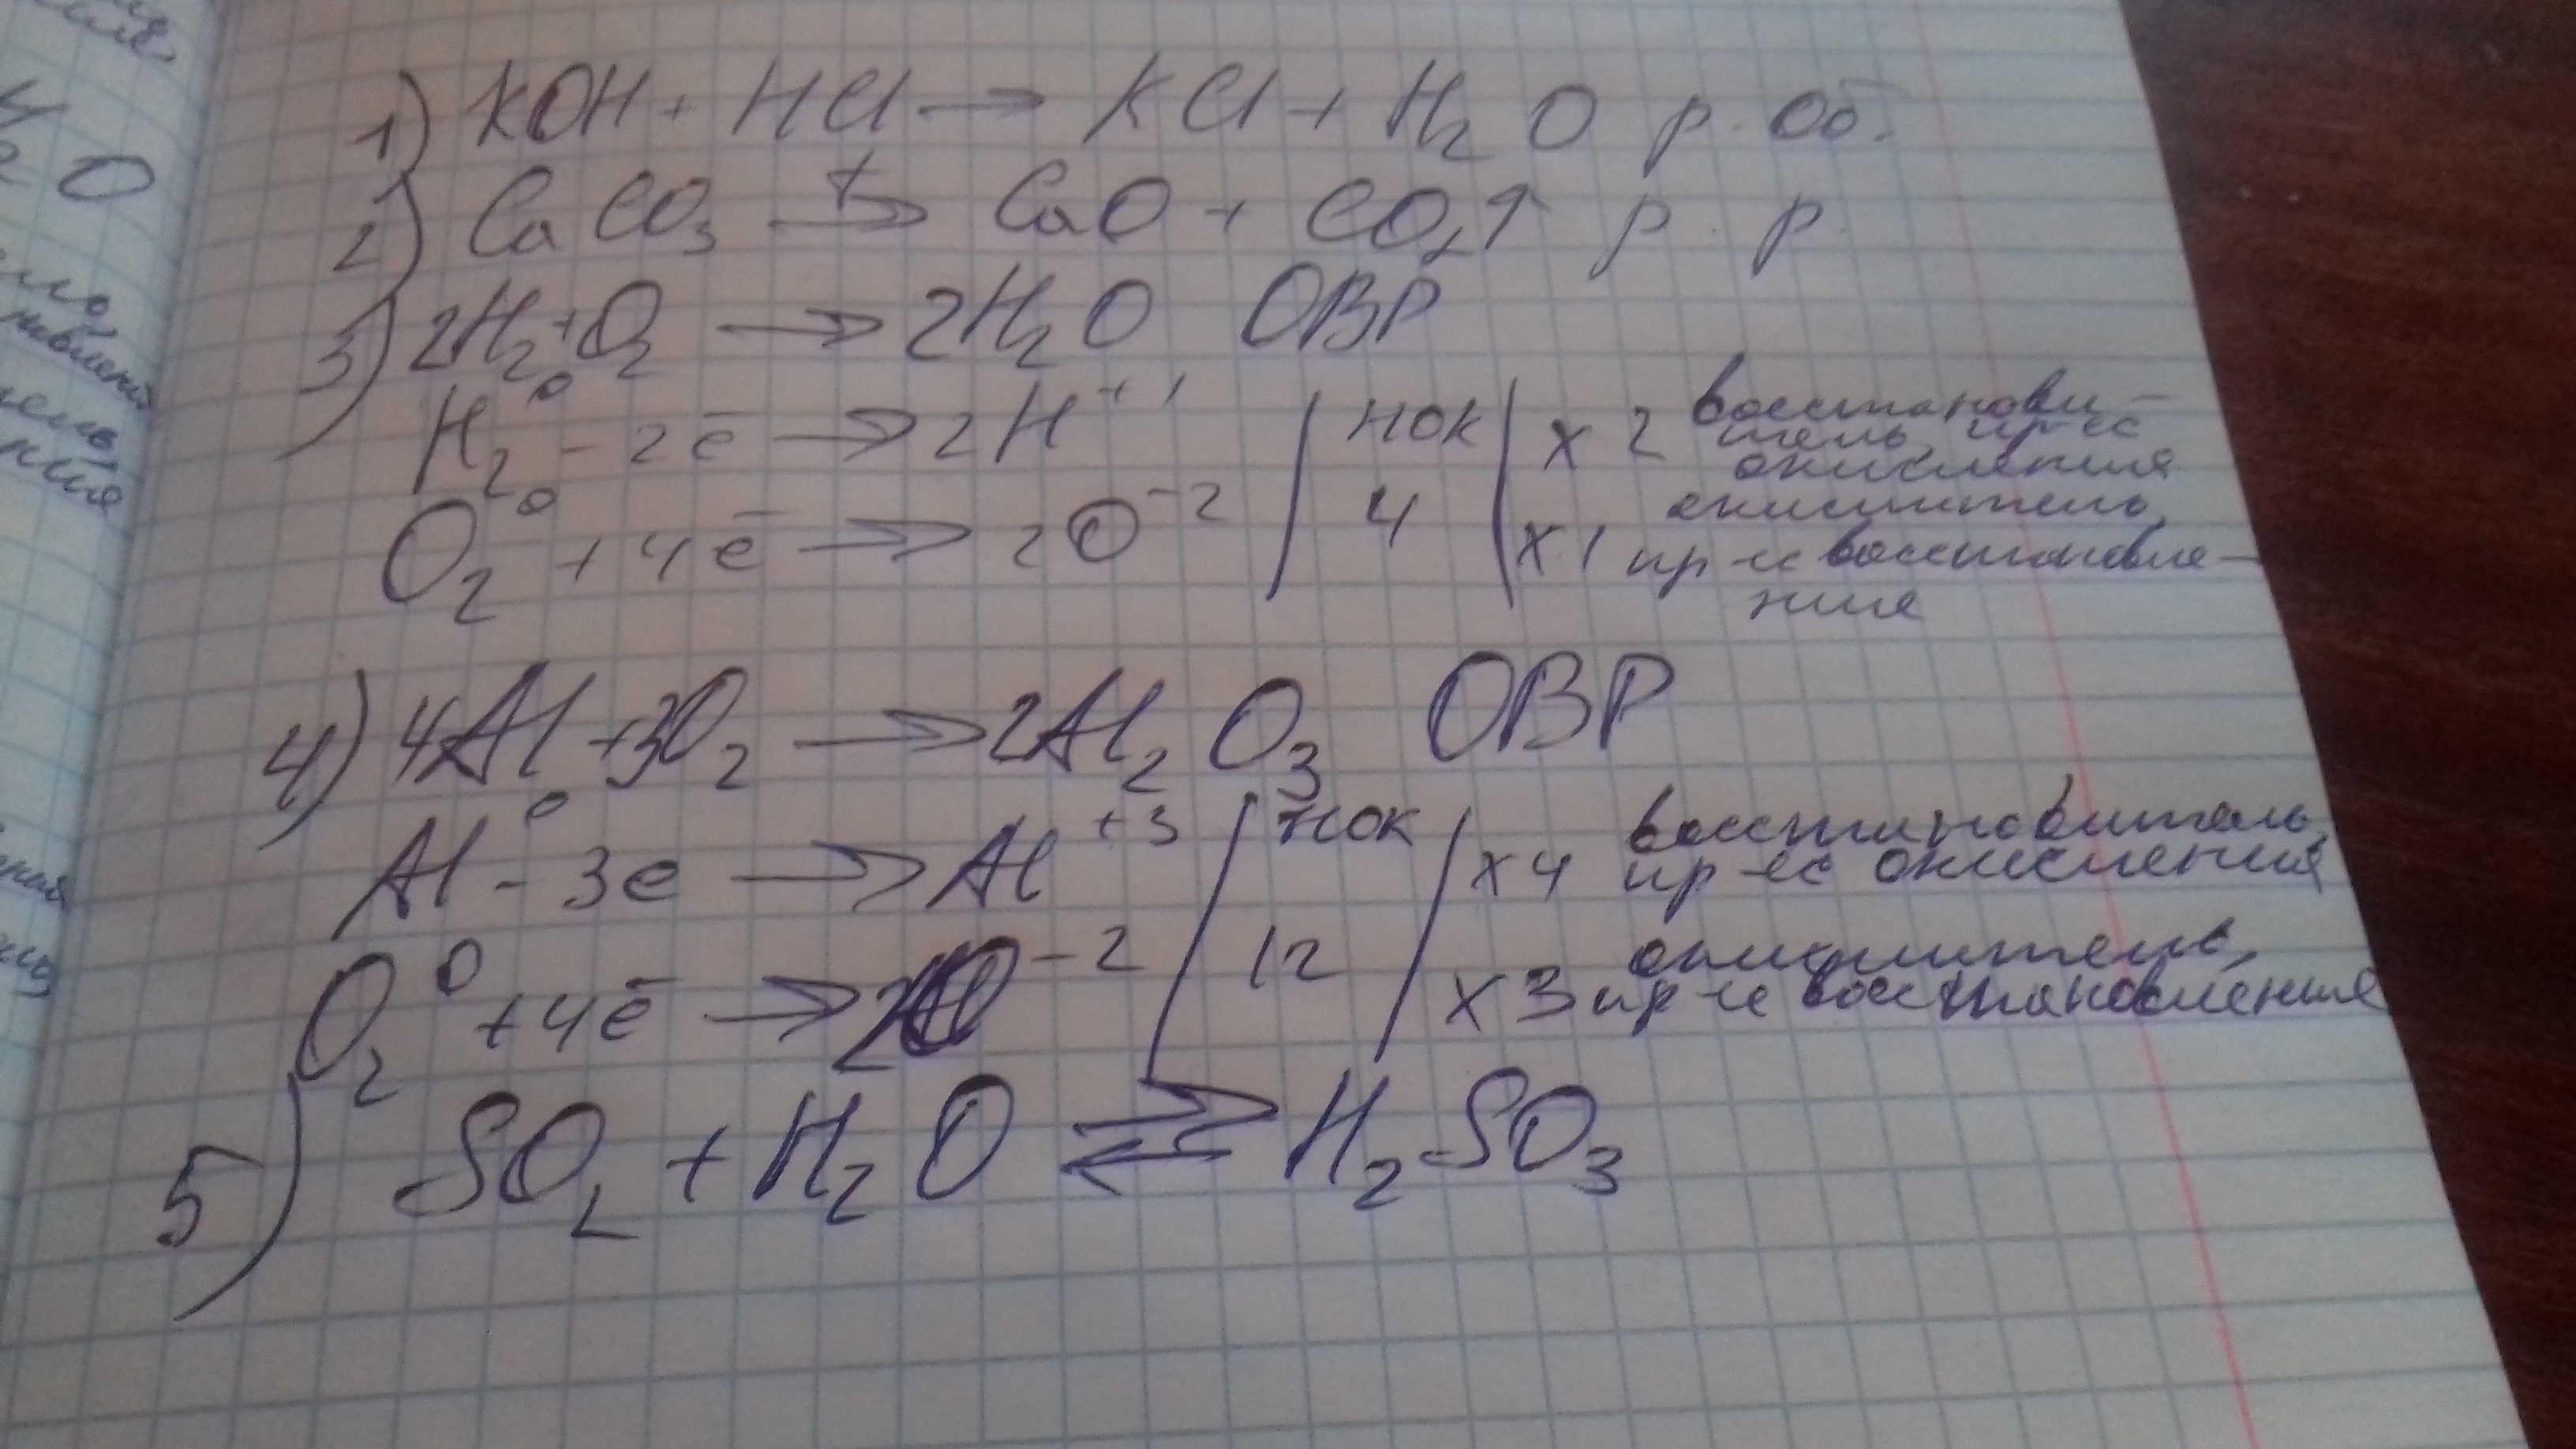 1) KOH + HCl → KCl + H₂O р. Об.
2) CaCO₃ t→ CaO + CO₂↑ р. р.
3) 2H₂ + O₂ → 2H₂O ОВР
H₂⁰ - 2ē → 2H⁺¹ | НОК | x 2 восстанови-
тель, пр-сс
окисления
O₂⁰ + 4ē → 2O⁻² | 4 | x 1 окислитель,
пр-сс восстановле-
ния
4) 4Al + 3O₂ → 2Al₂O₃ ОВР
Al⁰ - 3e → Al⁺³ | НОК | x 4 восстановитель,
пр-сс окисления
O₂⁰ + 4ē → 2O⁻² | 12 | x 3 окислитель,
пр-сс восстановления
5) SO₂ + H₂O ⇄ H₂SO₃
H₂O
ния